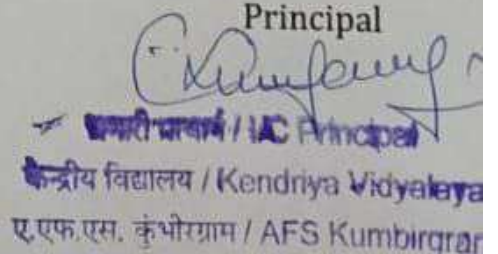 Principal
प्रभारी प्राचार्य / I/C Principal
केन्द्रीय विद्यालय / Kendriya Vidyalaya
ए.एफ.एस. कुंभीरग्राम / AFS Kumbirgram